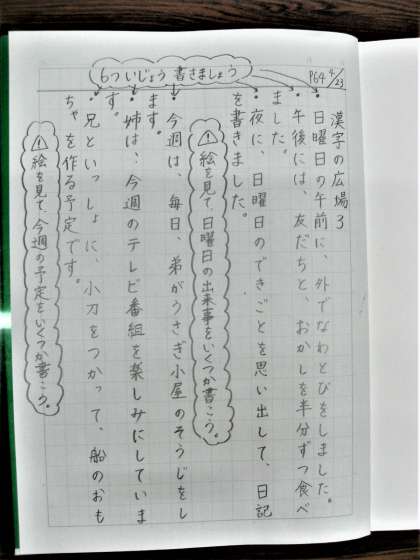 P64 4/23
6ついじょう書きましょう
漢字の広場3
・日曜日の午前に、外でなわとびをしました。
・午後には、友だちと、おかしを半分ずつ食べ
ました。
・夜に、日曜日のできごとを思い出して、日記
を書きました。
! 絵を見て、日曜日の出来事をいくつか書こう。
・今週は、毎日、弟がうさぎ小屋のそうじをし
ます。
・姉は、今週のテレビ番組を楽しみにしていま
す。
・兄といっしょに、小刀をつかって、船のおも
ちゃを作る予定です。
! 絵を見て、今週の予定をいくつか書こう。